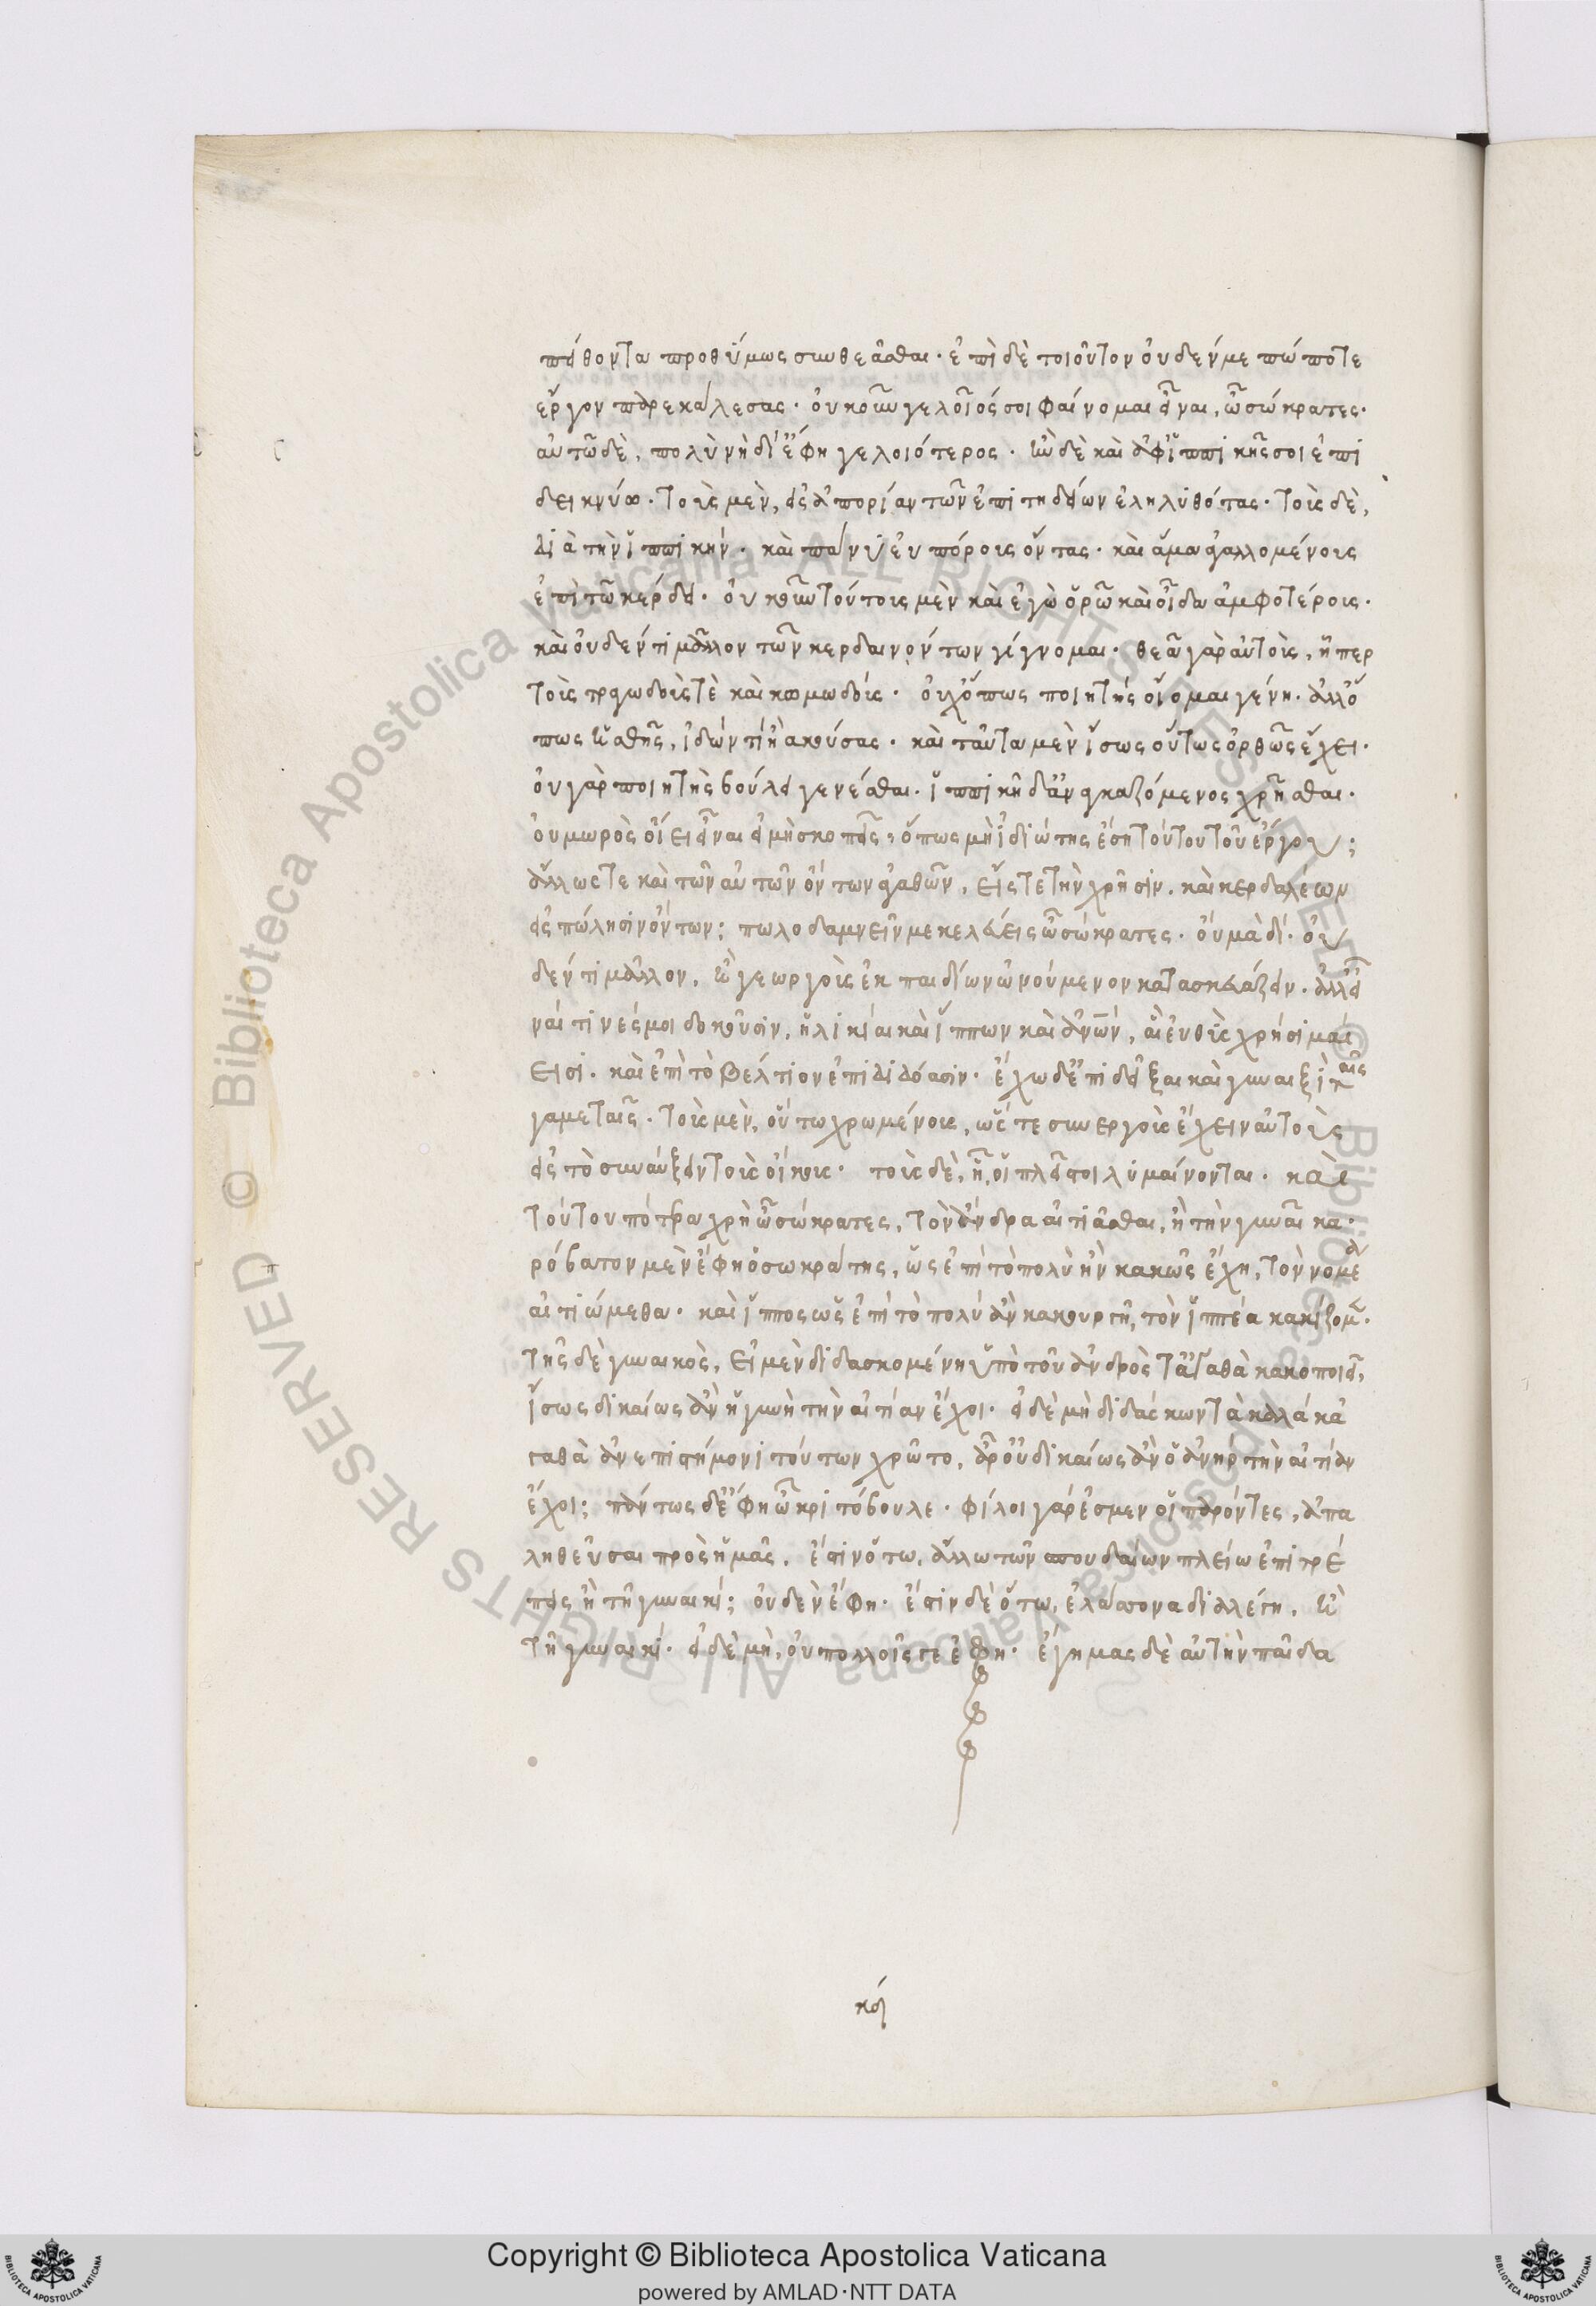 πείθοντα προθύμως συνθεᾶσθαι· ἐπὶ δὲ τοιοῦτον οὐδέν με πώποτε
ἔργον παρεκάλεσας· οὐκοῦν γελοῖός σοι φαίνομαι εἶναι, ὦ σώκρατες·
αὑτῶ δὲ, πολὺ νὴ δί' ἔφη γελοιότερος· ἢν δὲ καὶ ἀφ' ἱππικῆς σοι ἐπι
δεικνύω· τοὺς μὲν, εἰς ἀπορίαν τῶν ἐπιτηδείων ἐληλυθότας· τοὺς δὲ,
διὰ τὴν ἱππικὴν· καὶ πάνυ εὐπόρους ὄντας· καὶ ἅμα ἀγαλλομένους
ἐπὶ τῶ κέρδει· οὐκοῦν τούτους μὲν καὶ ἐγὼ ὁρῶ καὶ οἶδα ἀμφοτέρους·
καὶ οὐδέν τι μᾶλλον τῶν κερδαινόντων γίγνομαι· θεᾶ γὰρ αὐτοὺς, ἧπερ
τοὺς τραγωδούς τὲ καὶ κωμωδούς· οὐχ ὅπως ποιητὴς οἴομαι γένη· ἀλλ' ὅ
πως ἡσθῆς, ἰδών τι ἢ ἀκούσας· καὶ ταῦτα μὲν ἴσως οὕτως ὀρθῶς ἔχει·
οὐ γὰρ ποιητὴς βούλει γενέσθαι· ἱππικῆ δ' ἀναγκαζόμενος χρῆσθαι·
οὐ μωρὸς οἴει εἶναι εἰ μὴ σκοπεῖς, ὅπως μὴ ἰδιώτης ἔση τούτου τοῦ ἔργου;
ἄλλως τε καὶ τῶν αὐτῶν ὄντων ἀγαθῶν, εἴς τε τὴν χρῆσιν, καὶ κερδαλέων
εἰς πώλησιν ὄντων; πωλοδαμνεῖν με κελεύεις ὦ σώκρατες· οὐ μὰ δί· οὐ
δέν τι μᾶλλον, ἢ γεωργοὺς ἐκ παιδίων ὠνούμενον κατασκευάζειν· ἀλλ' εἶ
ναί τινές μοι δοκοῦσιν, ἡλικίαι καὶ ἵππων καὶ ἀνων, αἳ εὐθύς χρήσιμαί
εἰσι· καὶ ἐπὶ τὸ βέλτιον ἐπιδιδόασιν· ἔχω δ' ἐπιδεῖξαι καὶ γυναιξὶ ταῖς
γαμεταῖς· τοὺς μὲν, οὕτω χρωμένους, ὥστε συνεργοὺς ἔχειν αὐτοὺς
εἰς τὸ συναύξειν τοὺς οἴκους· τοὺς δὲ, ἧ, οἱ πλεῖστοι λυμαίνονται· καὶ
τούτου πότερα χρὴ ὦ σώκρατες, τὸν ἄνδρα αἰτιᾶσθαι, ἢ τὴν γυναῖκα·
ρόβατον μὲν ἔφη ὁ σωκράτης, ὡς ἐπὶ τὸ πολὺ ἢν κακῶς ἔχη, τὸν νομέα
αἰτιώμεθα· καὶ ἵππος ὡς ἐπὶ τὸ πολύ ἂν κακουργῆ, τὸν ἱππέα κακίζομ·
τῆς δὲ γυναικὸς, εἰ μὲν διδασκομένη ὑπὸ τοῦ ἀνδρὸς τἀγαθὰ κακοποιεῖ,
ἴσως δικαίως ἂν ἡ γυνὴ τὴν αἰτίαν ἔχοι· εἰ δὲ μὴ διδάσκων τὰ καλὰ κἀ
γαθὰ ἀνεπιστήμονι τούτων χρῶτο, ἆρ' οὐ δικαίως ἂν ὁ ἀνὴρ τὴν αἰτίαν
ἔχοι; πάντως δ' ἔφη ὦ κριτόβουλε· φίλοι γάρ ἐσμεν οἱ παρόντες, ἀπα
ληθεῦσαι πρὸς ἡμᾶς, ἔστιν ὅτω, ἄλλω τῶν σπουδαίων πλείω ἐπιτρέ
πεις ἢ τῆ γυναικί; οὐδὲν ἔφη· ἔστιν δὲ ὅτω, ἐλάσσονα διαλέγη, ἢ
τῆ γυναικί· εἰ δὲ μὴ, οὐ πολλοῖς γε ἔφη· ἔγημας δὲ αὐτὴν παῖδα